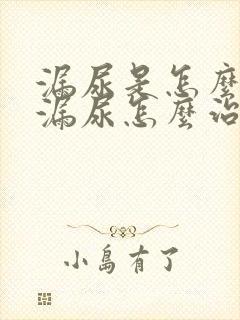 漏尿是怎麼
漏尿怎麼治
小島有了